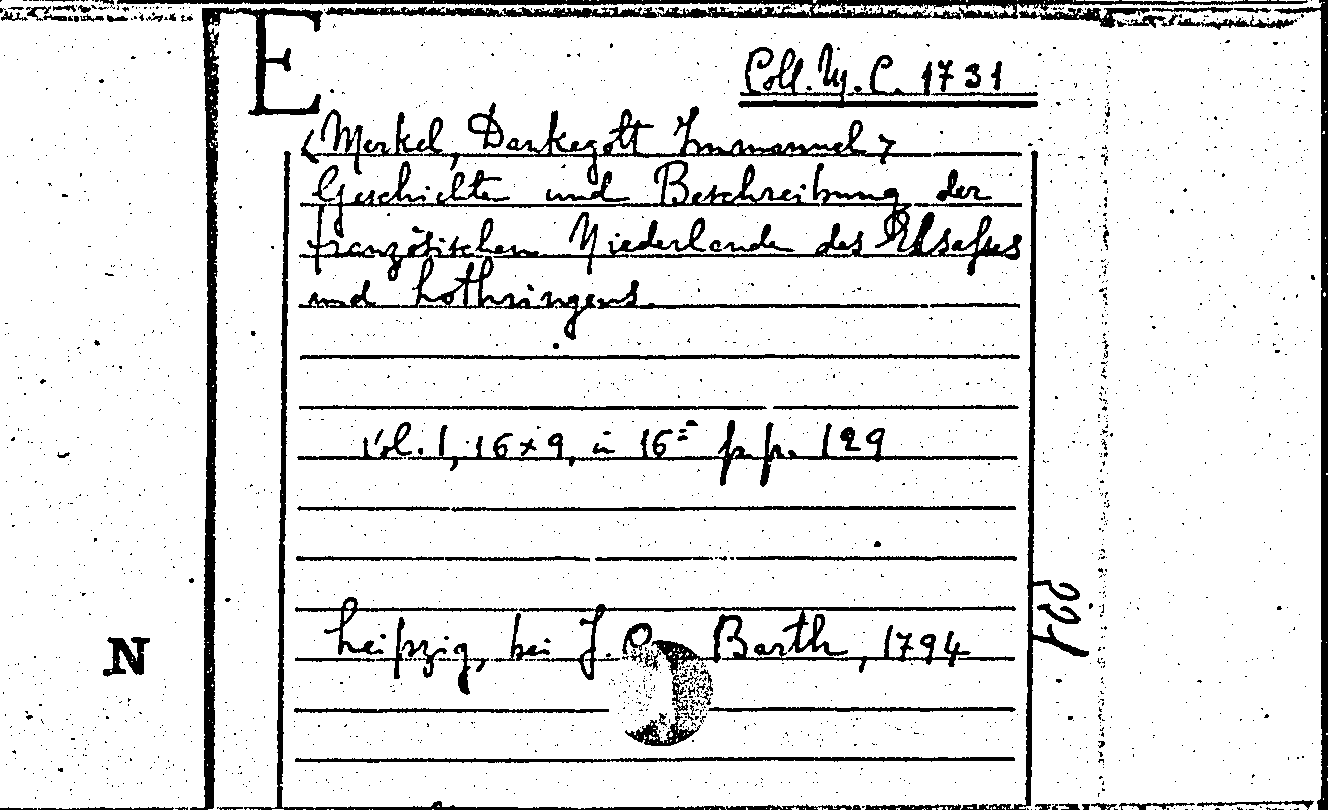 E
Coll. M. C. 1731
<Merkel, Dankegott Immanuel>
Geschichte und Beschreibung der
französischen Niederlande des Elsaßes
und Lothringens
Vol. 1, 16×9, in 16= p.p. 129
Leipzig, bei J. Barth, 1794
221
N